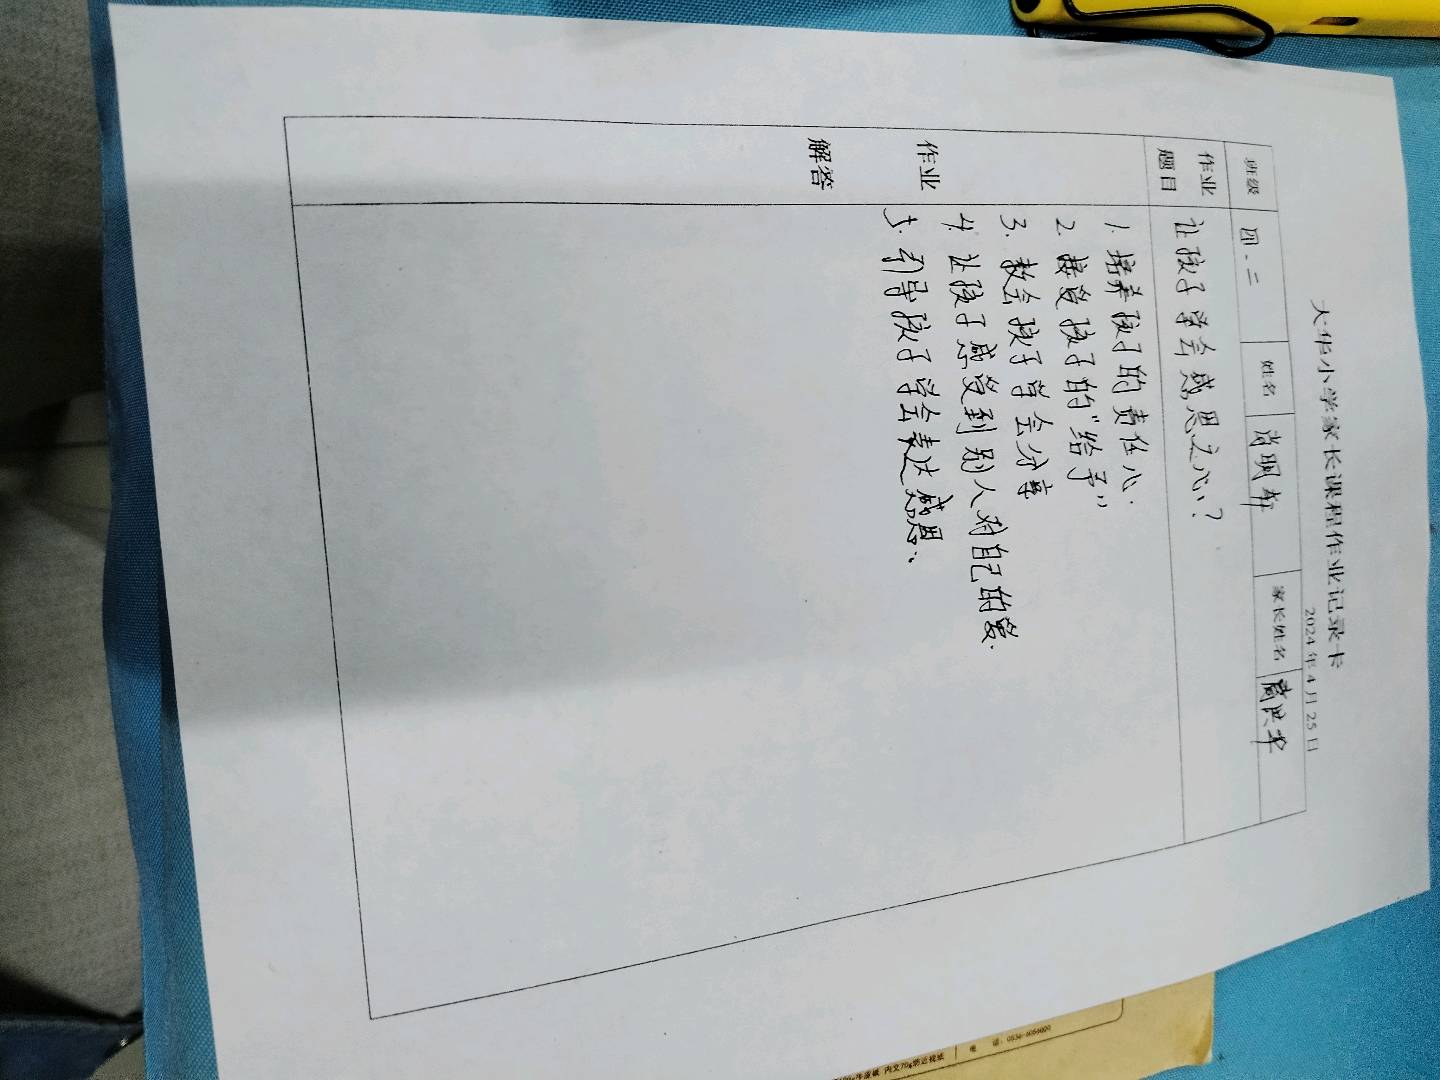 大华小学家长课程作业记录卡
2024年4月25日
班级 四、二 姓名 尚明轩 家长姓名
作业题目 让孩子学会感恩之心?
作业解答
1. 培养孩子的责任心.
2. 接受孩子的“给予”
3. 教会孩子学会分享
4. 让孩子感受到别人对自己的爱.
5. 引导孩子学会表达感恩、
内文70g纳近视纸
电 话: 0536-6056000